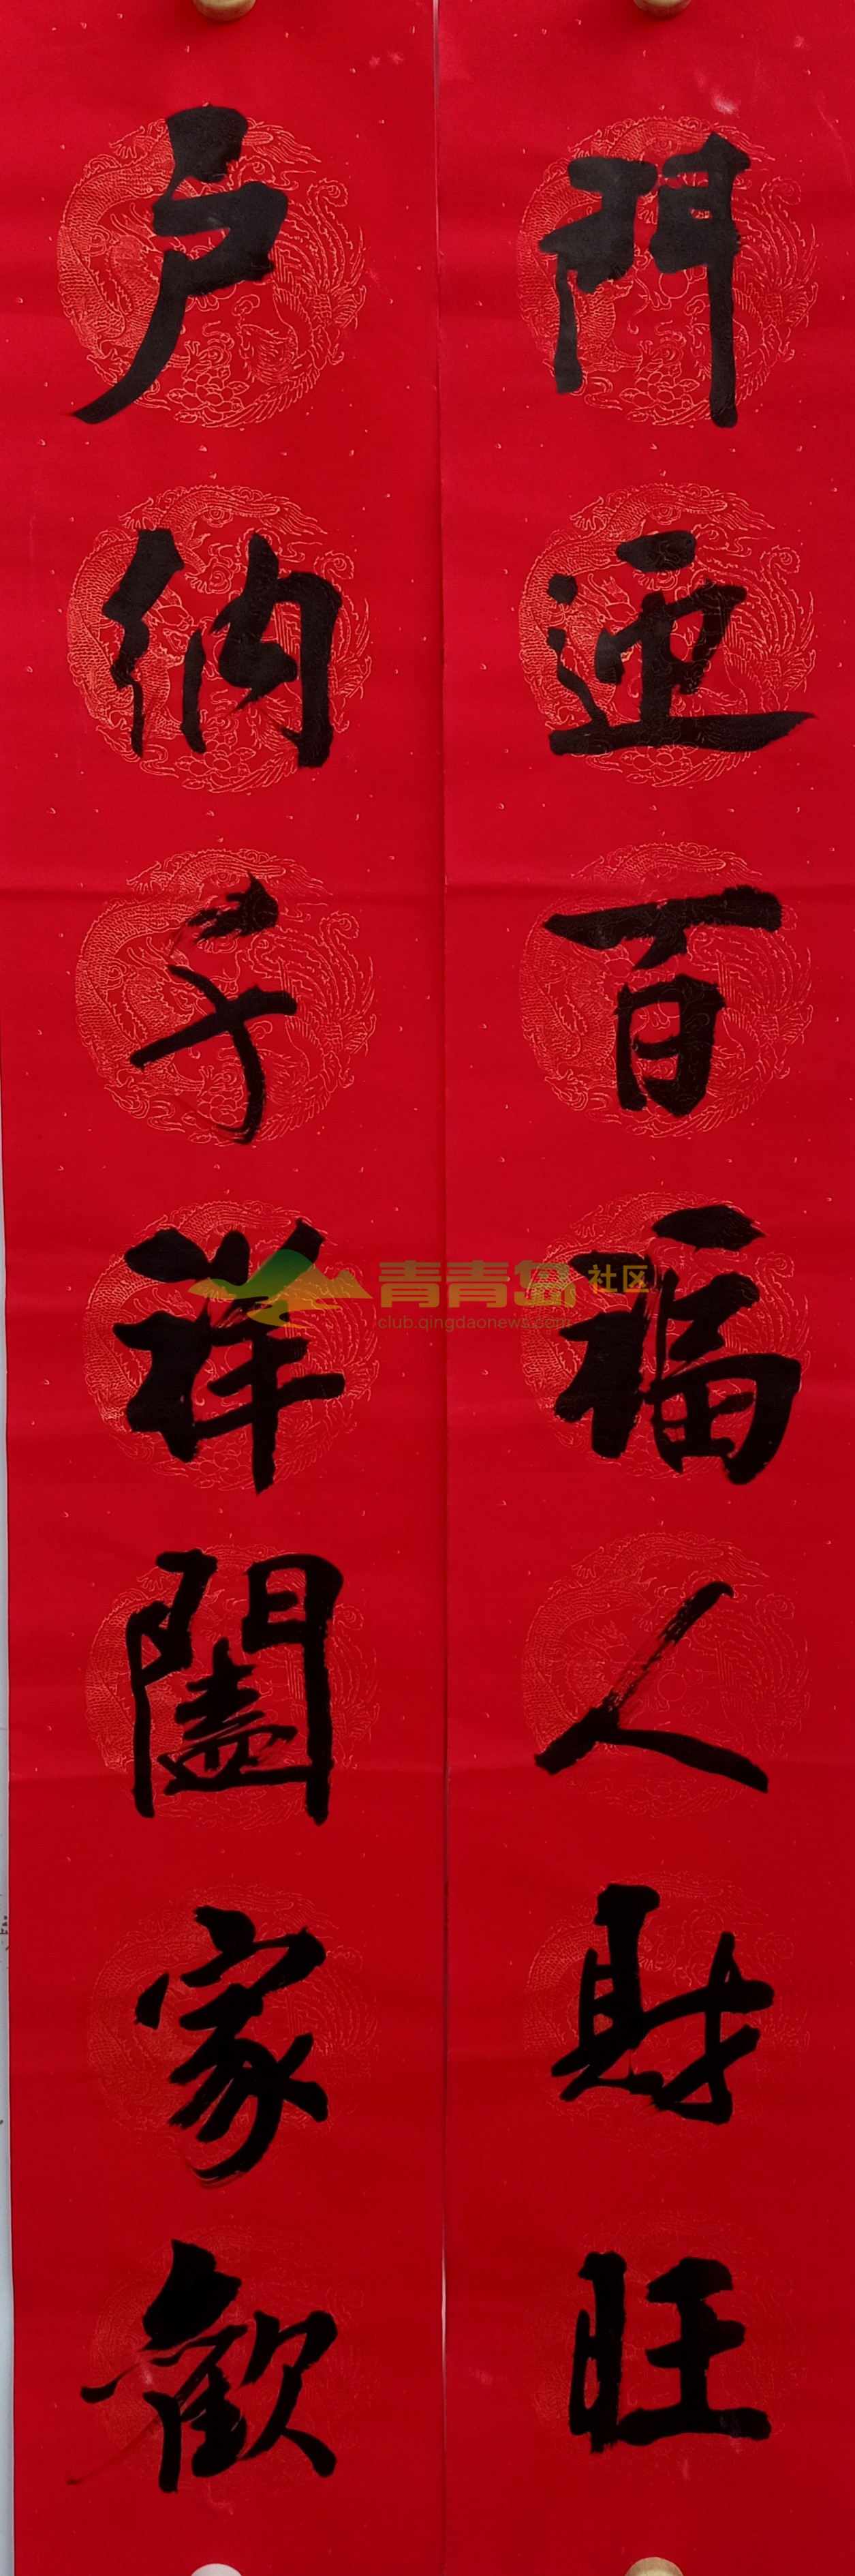 門迎百福人財旺
户納千祥闔家歡
青青岛社区
club.qingdaonews.com